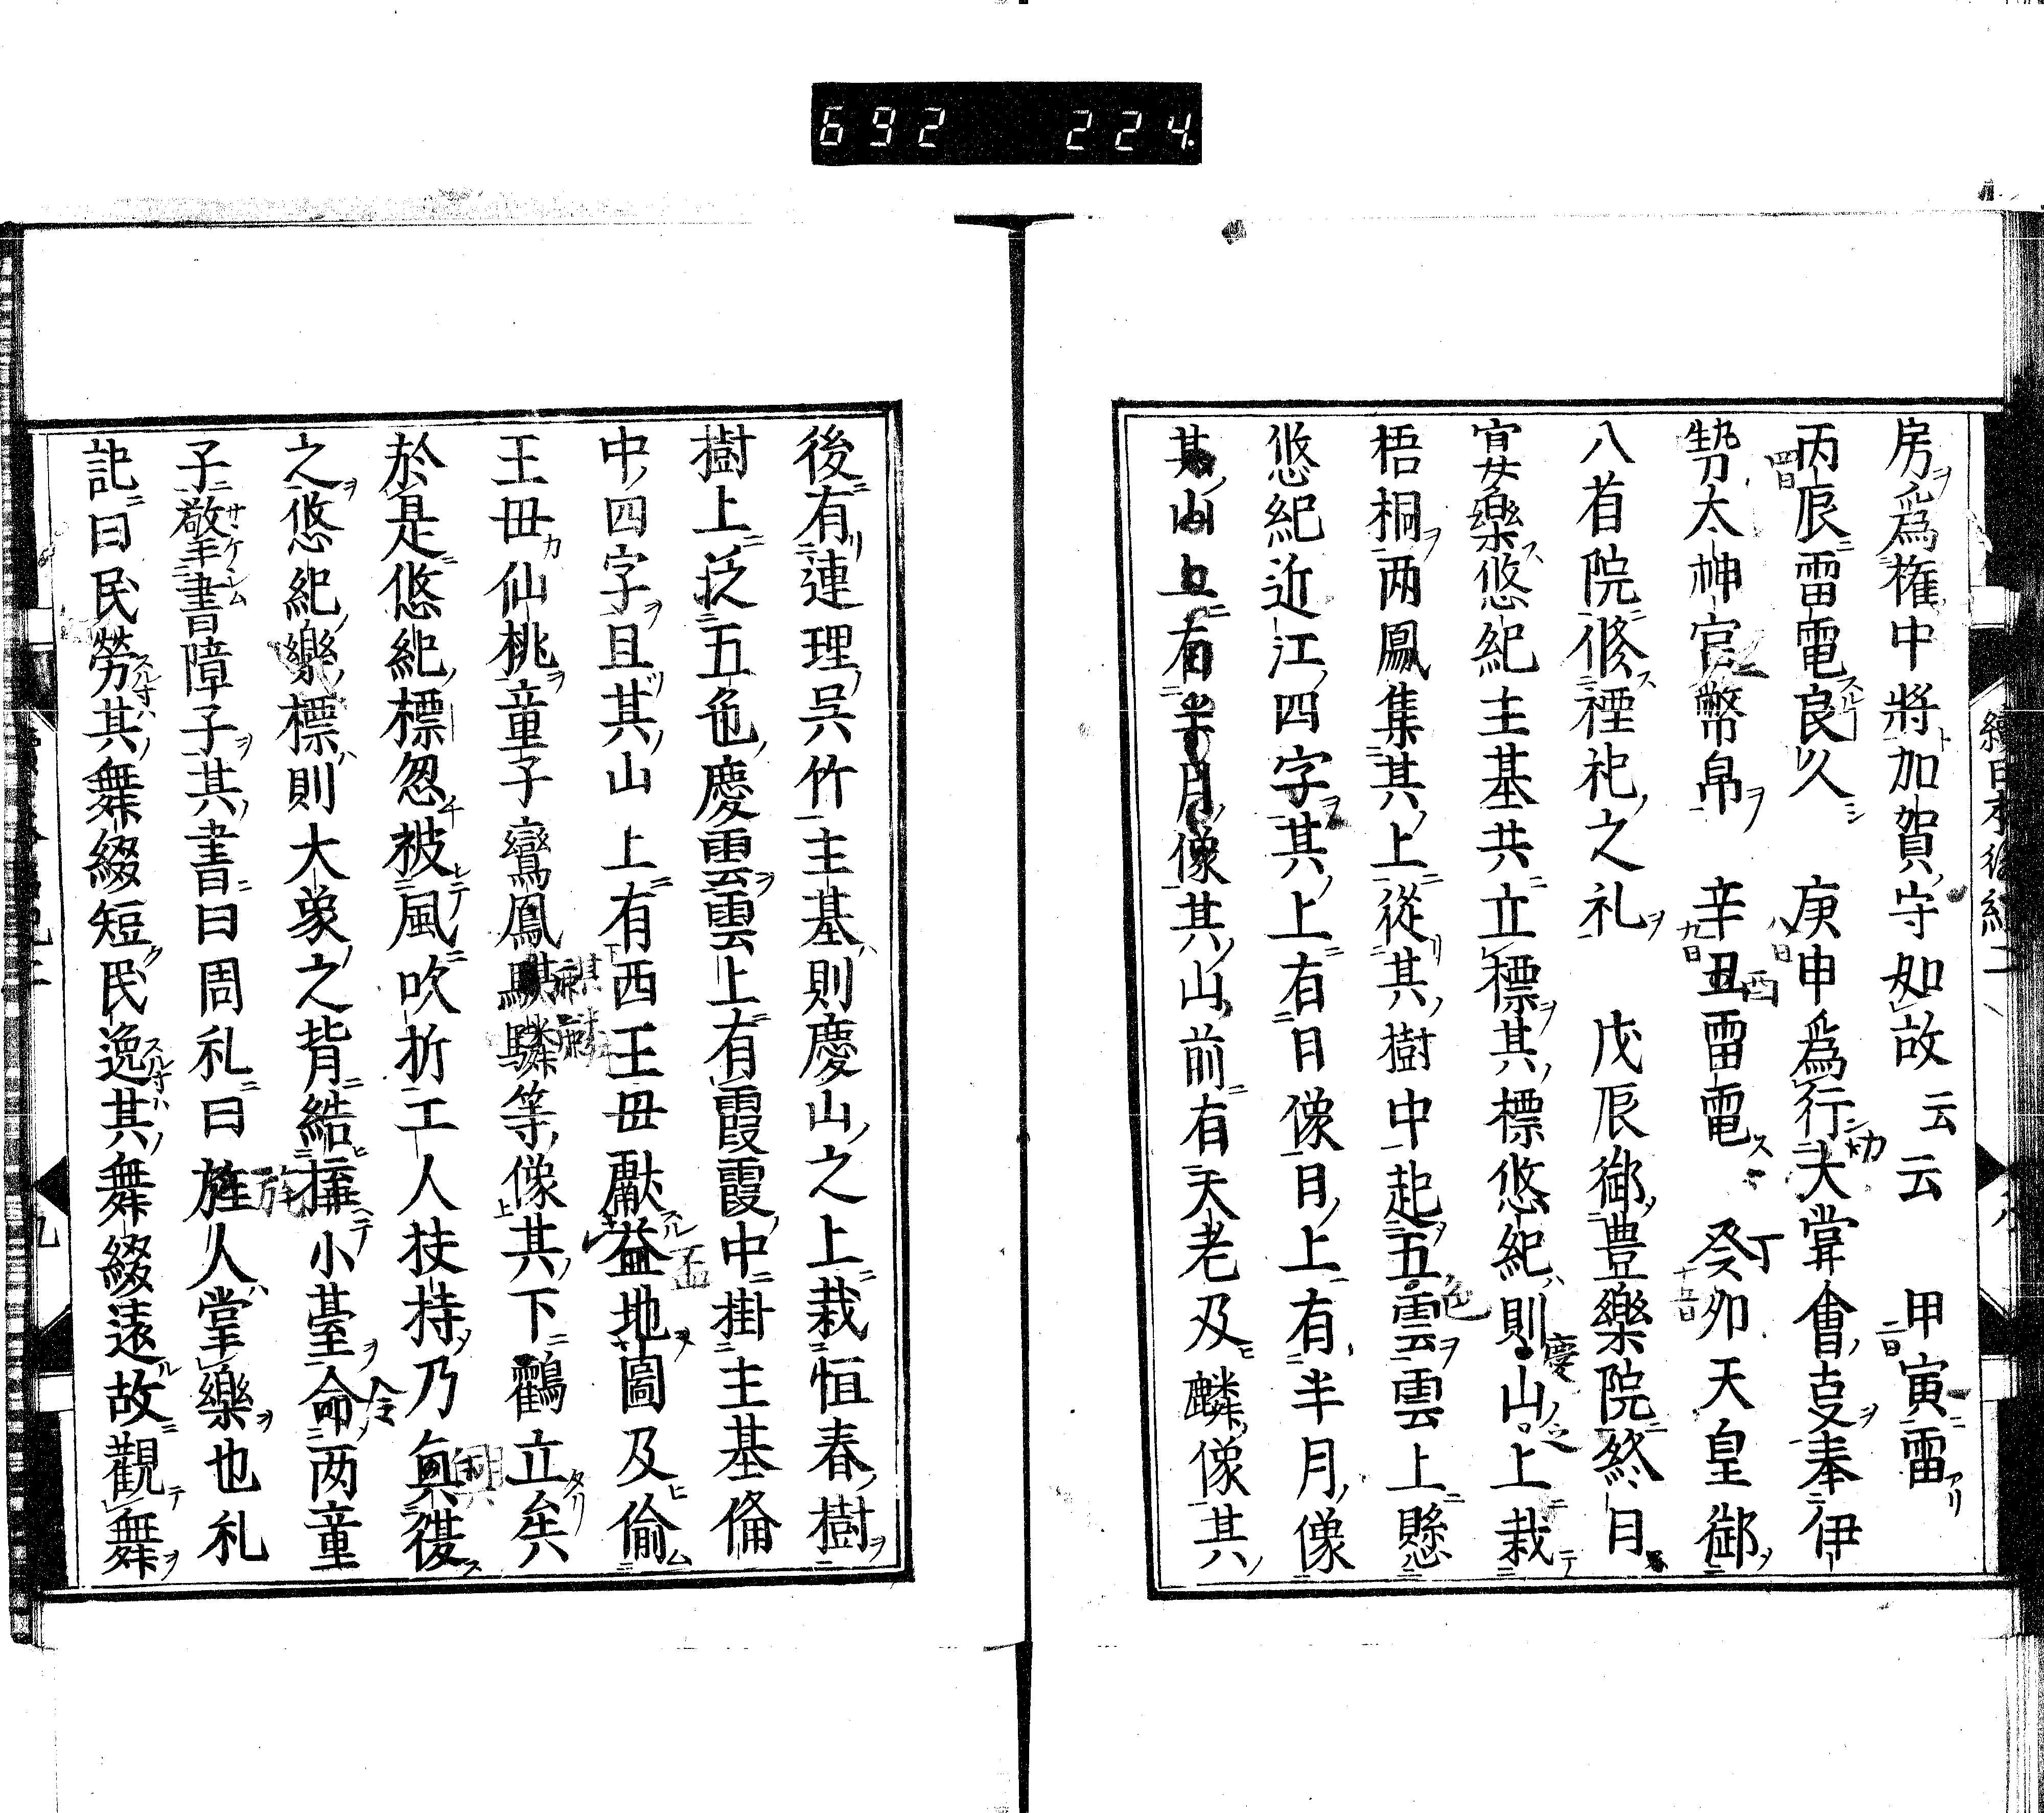 692 224
續日本後紀二
房爲權中將加賀守如故云云 甲寅雷
丙辰雷電良久 庚申爲行大甞會㕝奉伊
勢太神宮幣帛 辛丑雷電 癸卯天皇御
八省院修禋祀之礼 戊辰御豊樂院終日
宴樂悠紀主基共立標其標悠紀則山上栽
梧桐两鳳集其上從其樹中起五雲雲上懸
悠紀近江四字其上有日像日上有半月像
其山上有半月像其山前有天老及麟像其
後有連理呉竹主基則慶山之上栽恒春樹
樹上泛五色慶雲雲上有霞霞中掛主基俻
中四字且其山上有西王毋獻益地圖及偷
王毋仙桃童子鸞鳳騏驎等像其下鸖立矣
於是悠紀標忽被風吹折工人扶持乃眞復
之悠紀樂標則大象之背結構小䑓命两童
子敬擎書障子其書曰周礼曰旌人掌樂也礼
記曰民勞其舞綴短民逸其舞綴遠故觀舞